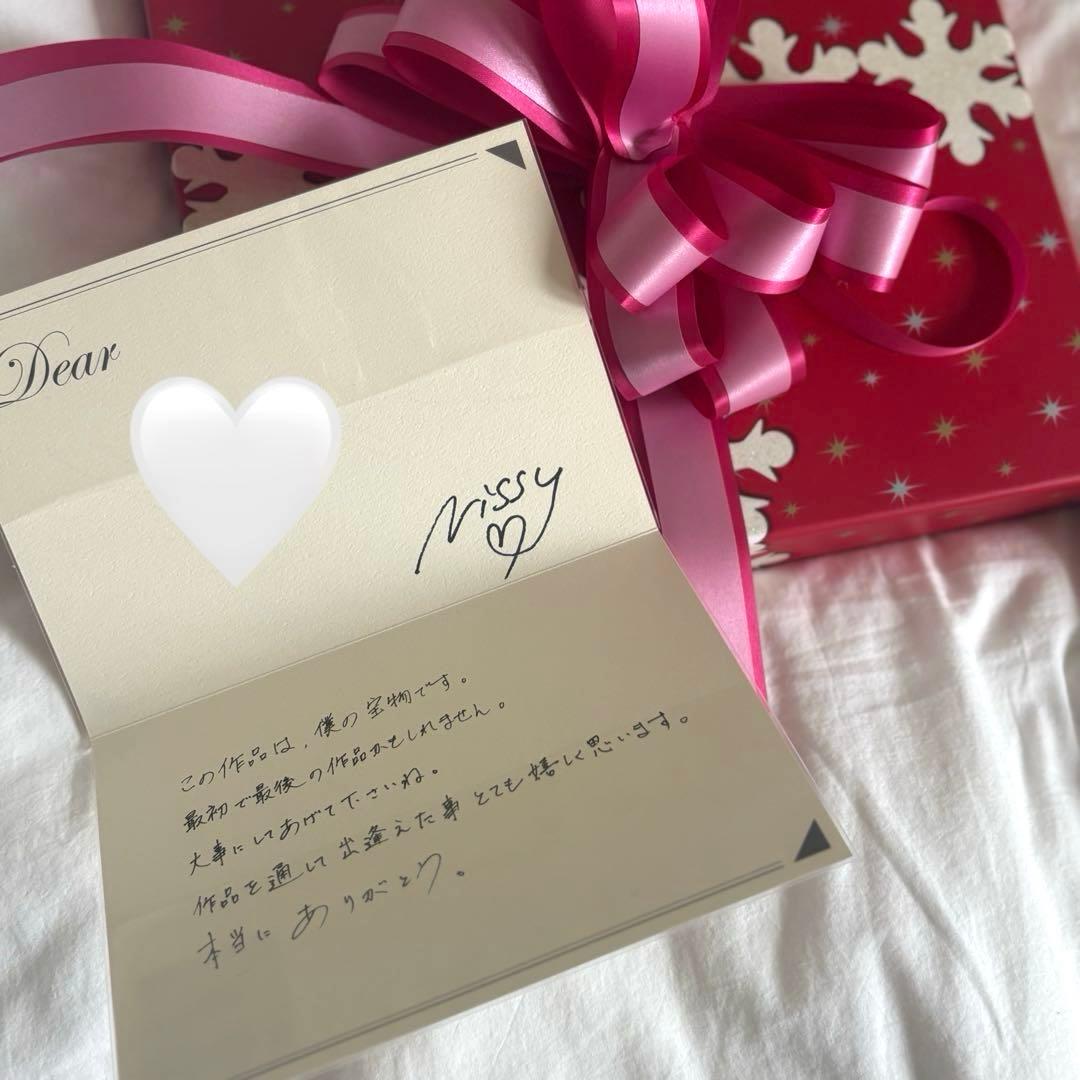 Dear
Nissy
この作品は、僕の宝物です。
最初で最後の作品かもしれません。
大事にしてあげて下さいね。
作品を通して出逢えた事とても嬉しく思います。
本当にありがとう。